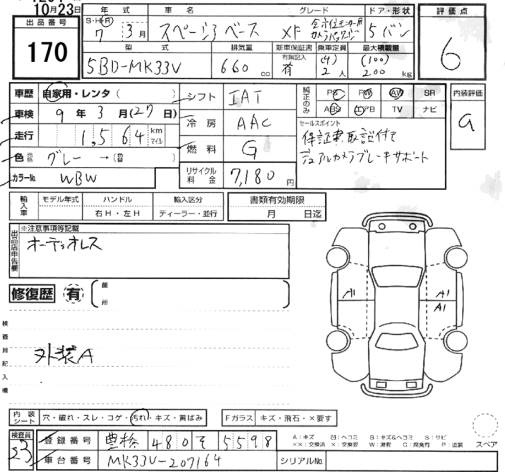 10月23日
出品番号 170
年式 S・H・R 7年 3月
車名 スペーシアベース
グレード XF
ドア・形状 5 バン
評価点 6
型式 5BD-MK33V
排気量 660 cc
新車保証書 有
乗車定員 (4) 2人
最大積載量 (100) 200 kg
車歴 自家用・レンタ ( )
車検 9年 3月 (27日)
走行 1,564 km マイル
色 グレー → (替 )
カラーNo. WBW
シフト IAT
冷房 AAC
燃料 G
リサイクル料金 7,180 円
純正のみ PS PW AW SR
ABS エアB TV ナビ
セールスポイント
保証書、取説付て
デュアルカメラブレーキサポート
内装評価 a
輸入車 モデル年式 ハンドル 右H・左H 輸入区分 ディーラー・並行
書類有効期限 月 日迄
出品店申告欄 ※注意事項等記載
オーディオレス
修復歴 有 箇所
検査員記入欄
外装A
A1
A1
A1
内装シート 穴・破れ・スレ・コゲ・汚れ・キズ・黄ばみ
Fガラス キズ・飛石・×要す
スペア
検査員 23
登録番号 豊橋 480 そ 5598
車台番号 MK33V-207164
シリアルNo.